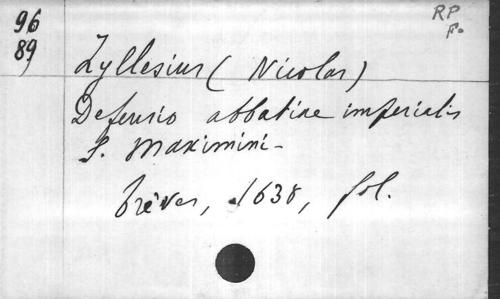 96
89
RP
F.
Zyllesius (Nicolas)
Defensio abbatiae imperialis
S. Maximini -
Trèves, 1638, fol.